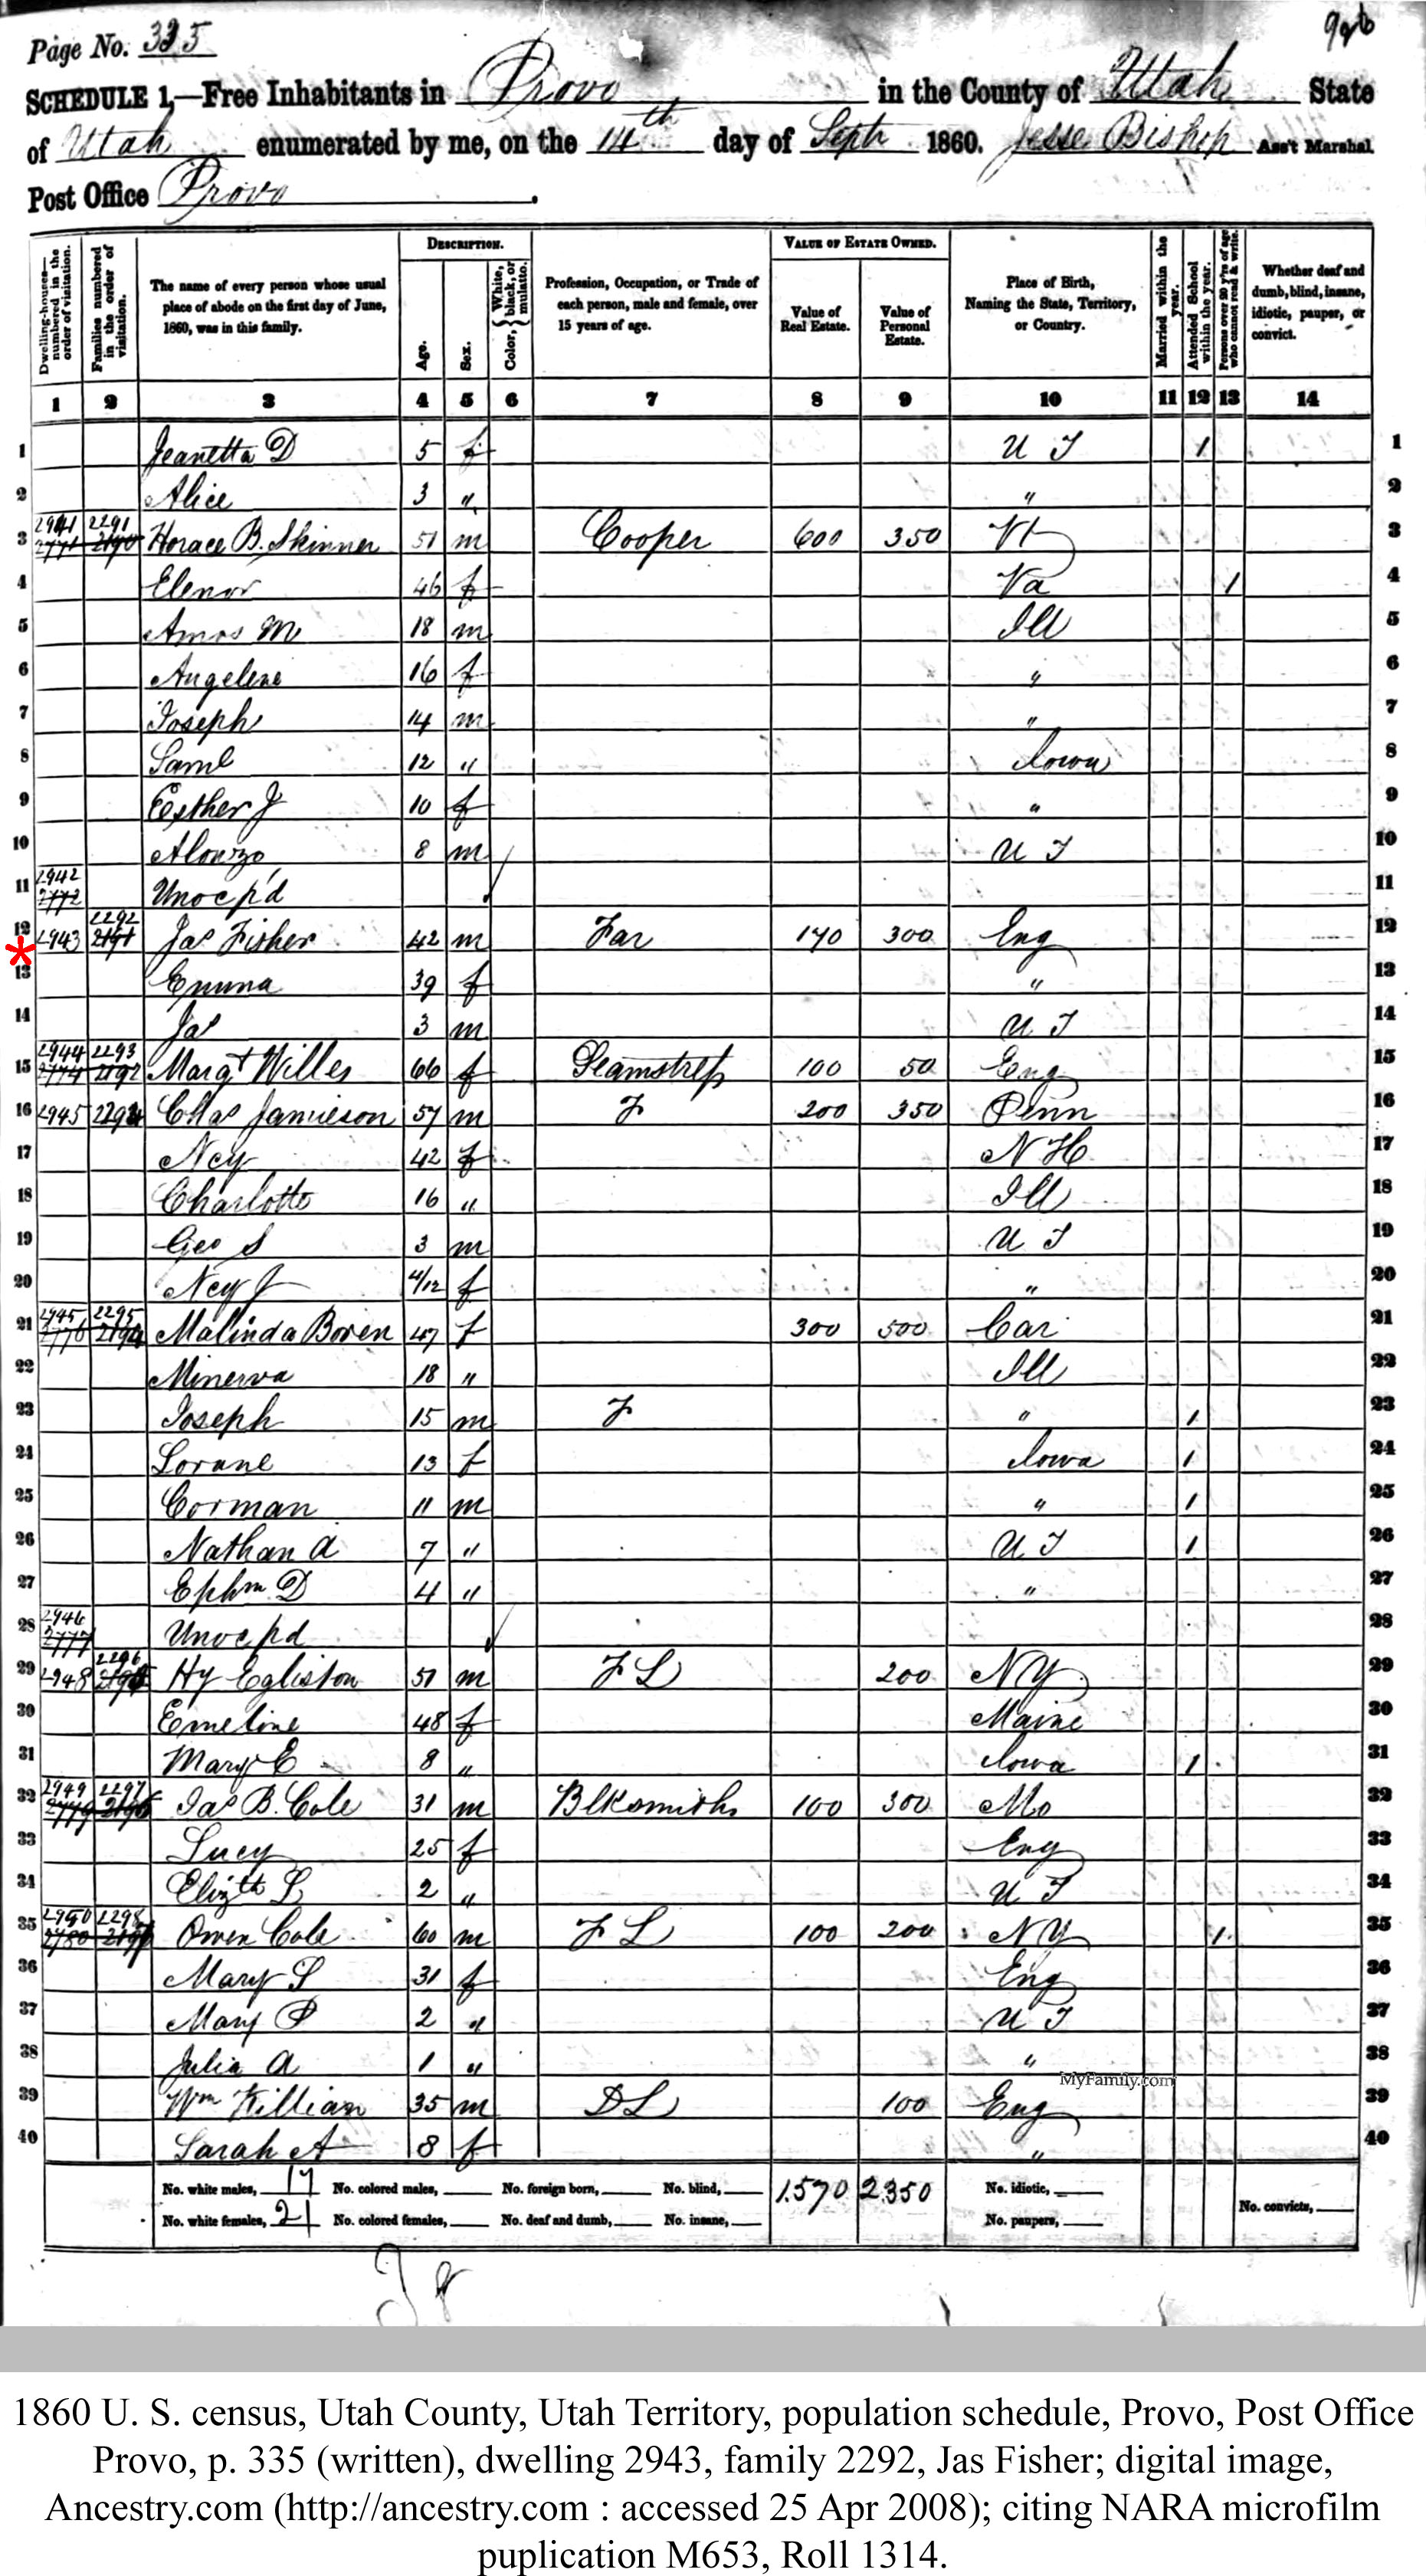 Page No. 335
926
SCHEDULE 1,—Free Inhabitants in Provo in the County of Utah State
of Utah enumerated by me, on the 14th day of Sept 1860. Jesse Bishop Ass't Marshal.
Post Office Provo.
Dwelling-houses—numbered in the order of visitation.
Families numbered in the order of visitation.
The name of every person whose usual place of abode on the first day of June, 1860, was in this family.
DESCRIPTION.
Age.
Sex.
Color, { White, black, or mulatto.
Profession, Occupation, or Trade of each person, male and female, over 15 years of age.
VALUE OF ESTATE OWNED.
Value of Real Estate.
Value of Personal Estate.
Place of Birth, Naming the State, Territory, or Country.
Married within the year.
Attended School within the year.
Persons over 20 y'rs of age who cannot read & write.
Whether deaf and dumb, blind, insane, idiotic, pauper, or convict.
1 2 3 4 5 6 7 8 9 10 11 12 13 14
1 Jeanetta D 5 f U T 1 1
2 Alice 3 " " 2
3 2941 2291 Horace B. Skinner 51 m Cooper 600 350 Vt 3
4 Elenor 46 f Va 1 4
5 Amos M 18 m Ill 5
6 Angeline 16 f " 6
7 Joseph 14 m " 7
8 Saml 12 " Iowa 8
9 Esther J 10 f " 9
10 Alonzo 8 m U T 10
11 2942 Unocp'd 11
12 2943 2292 Jas Fisher 42 m Far 170 300 Eng 12
13 Emma 39 f " 13
14 Jas 3 m U T 14
15 2944 2293 Margt Willes 66 f Seamstress 100 50 Eng 15
16 2945 2294 Chas Jamieson 57 m F 200 350 Penn 16
17 Ncy 42 f N H 17
18 Charlotte 16 " Ill 18
19 Geo S 3 m U T 19
20 Ncy J 4/12 f " 20
21 2945 2295 Malinda Boren 47 f 300 500 Car 21
22 Minerva 18 " Ill 22
23 Joseph 15 m F " 1 23
24 Lorane 13 f Iowa 1 24
25 Corman 11 m " 1 25
26 Nathan A 7 " U T 1 26
27 Ephm D 4 " " 27
28 2946 Unocpd 28
29 2948 2296 Hy Egliston 51 m F L 200 N Y 29
30 Emeline 48 f Maine 30
31 Mary E 8 " Iowa 1 31
32 2949 2297 Jas B. Cole 31 m Blksmith 100 300 Mo 32
33 Lucy 25 f Eng 33
34 Elizth L 2 " U T 34
35 2950 2298 Owen Cole 60 m F L 100 200 N Y 1 35
36 Mary S 31 f Eng 36
37 Mary P 2 " U T 37
38 Julia A 1 " " 38
MyFamily.com
39 Wm Killian 35 m D L 100 Eng 39
40 Sarah A 8 f " 40
No. white males, 17 No. colored males, No. foreign born, No. blind, 1.570 2350 No. idiotic,
No. convicts,
No. white females, 21 No. colored females, No. deaf and dumb, No. insane, No. paupers,
1860 U. S. census, Utah County, Utah Territory, population schedule, Provo, Post Office
Provo, p. 335 (written), dwelling 2943, family 2292, Jas Fisher; digital image,
Ancestry.com (http://ancestry.com : accessed 25 Apr 2008); citing NARA microfilm
puplication M653, Roll 1314.